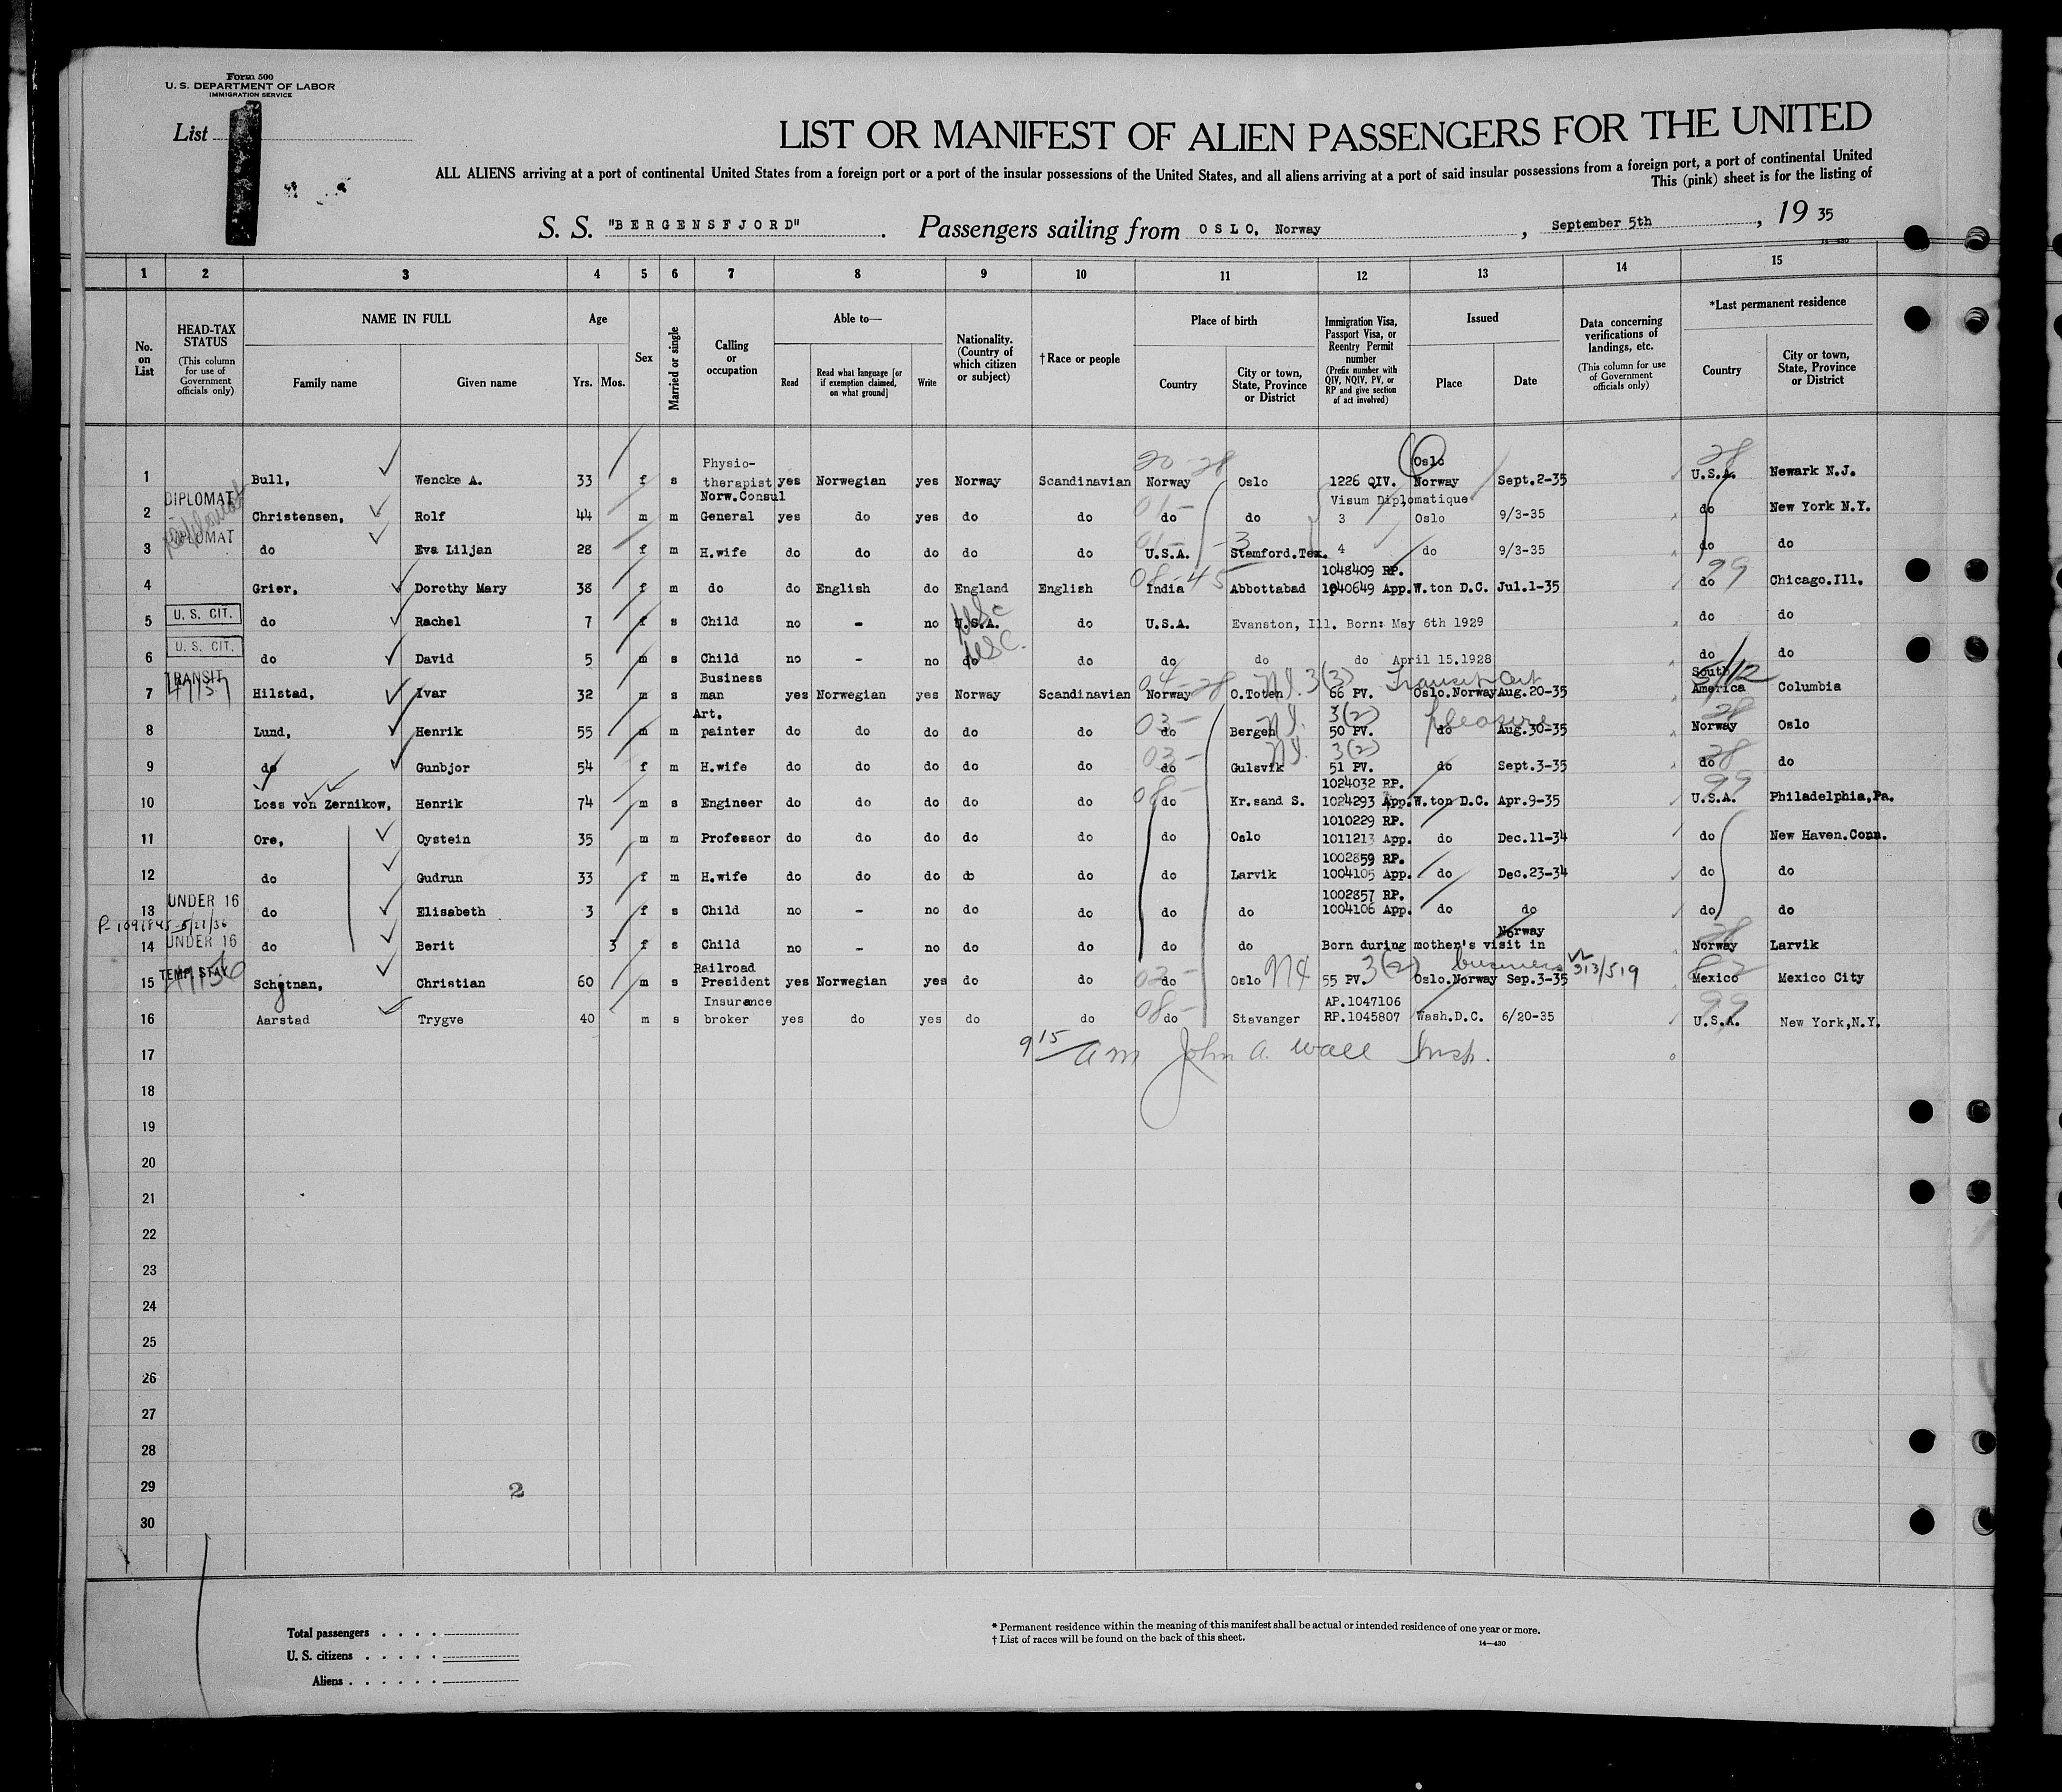 Form 500
U. S. DEPARTMENT OF LABOR
IMMIGRATION SERVICE
List
LIST OR MANIFEST OF ALIEN PASSENGERS FOR THE UNITED
ALL ALIENS arriving at a port of continental United States from a foreign port or a port of the insular possessions of the United States, and all aliens arriving at a port of said insular possessions from a foreign port, a port of continental United
This (pink) sheet is for the listing of
S. S. "BERGENSFJORD". Passengers sailing from OSLO, Norway, September 5th, 19 35
14—430
1 2 3 4 5 6 7 8 9 10 11 12 13 14 15
No. on List
HEAD-TAX STATUS (This column for use of Government officials only)
NAME IN FULL
Family name
Given name
Age
Yrs. Mos.
Sex
Married or single
Calling or occupation
Able to—
Read
Read what language [or if exemption claimed, on what ground]
Write
Nationality. (Country of which citizen or subject)
†Race or people
Place of birth
Country
City or town, State, Province or District
Immigration Visa, Passport Visa, or Reentry Permit number (Prefix number with QIV, NQIV, PV, or RP and give section of act involved)
Issued
Place
Date
Data concerning verifications of landings, etc. (This column for use of Government officials only)
*Last permanent residence
Country
City or town, State, Province or District
1 Bull, Wencke A. 33 f s Physio-therapist yes Norwegian yes Norway Scandinavian 20-28 Norway Oslo 1226 QIV. Oslo Norway Sept.2-35 28 U.S.A. Newark N.J.
2 DIPLOMAT Christensen, Rolf 44 m m Norw.Consul General yes do yes do do 01- do do Visum Diplomatique 3 Oslo 9/3-35 do New York N.Y.
3 DIPLOMAT do Eva Liljan 28 f m H.wife do do do do do 01- U.S.A. -3 Stamford.Tex. 4 do 9/3-35 do do
4 Grier, Dorothy Mary 38 f m do do English do England English 08-45 India Abbottabad 1048409 RP. 1040649 App. W.ton D.C. Jul.1-35 99 do Chicago.Ill.
5 U. S. CIT. do Rachel 7 f s Child no - no U.S.A. usc do U.S.A. Evanston, Ill. Born: May 6th 1929 do do
6 U. S. CIT. do David 5 m s Child no - no do usc. do do do do April 15.1928 do do
7 TRANSIT 47137 Hilstad, Ivar 32 m s Business man yes Norwegian yes Norway Scandinavian 04-28 Norway O.Toten 3(3) Transit 66 PV. Oslo.Norway Aug.20-35 South America 5/12 Columbia
8 Lund, Henrik 55 m m Art. painter do do do do do 03- do Bergen 3(2) 50 PV. pleasure do Aug.30-35 28 Norway Oslo
9 do Gunbjor 54 f m H.wife do do do do do 03- do Gulsvik 3(2) 51 PV. do Sept.3-35 28 do do
10 Loss von Zernikow, Henrik 74 m s Engineer do do do do do 08- do Kr.sand S. 1024032 RP. 1024293 App. W.ton D.C. Apr.9-35 99 U.S.A. Philadelphia,Pa.
11 Ore, Oystein 35 m m Professor do do do do do do Oslo 1010229 RP. 1011213 App. do Dec.11-34 do New Haven.Conn.
12 do Gudrun 33 f m H.wife do do do do do do Larvik 1002859 RP. 1004105 App. do Dec.23-34 do do
13 UNDER 16 do Elisabeth 3 f s Child no - no do do do do 1002857 RP. 1004106 App. do do do do
P-1091845-5/21/36
14 UNDER 16 do Berit 3 f s Child no - no do do do do Born during mother's visit in Norway 28 Norway Larvik
15 TEMP. STAY 47136 Schjetnan, Christian 60 m s Railroad President yes Norwegian yes do do 02- do Oslo 3(2) business 55 PV. Oslo.Norway Sep.3-35 313/519 Mexico Mexico City
16 Aarstad Trygve 40 m s Insurance broker yes do yes do do 08- do Stavanger AP.1047106 RP.1045807 Wash.D.C. 6/20-35 99 U.S.A. New York,N.Y.
17 9 15 am John A. Wall Insp.
18
19
20
21
22
23
24
25
26
27
28
29
2
30
Total passengers . . . .
U. S. citizens . . . . .
Aliens . . . . . .
* Permanent residence within the meaning of this manifest shall be actual or intended residence of one year or more.
† List of races will be found on the back of this sheet.
14—430